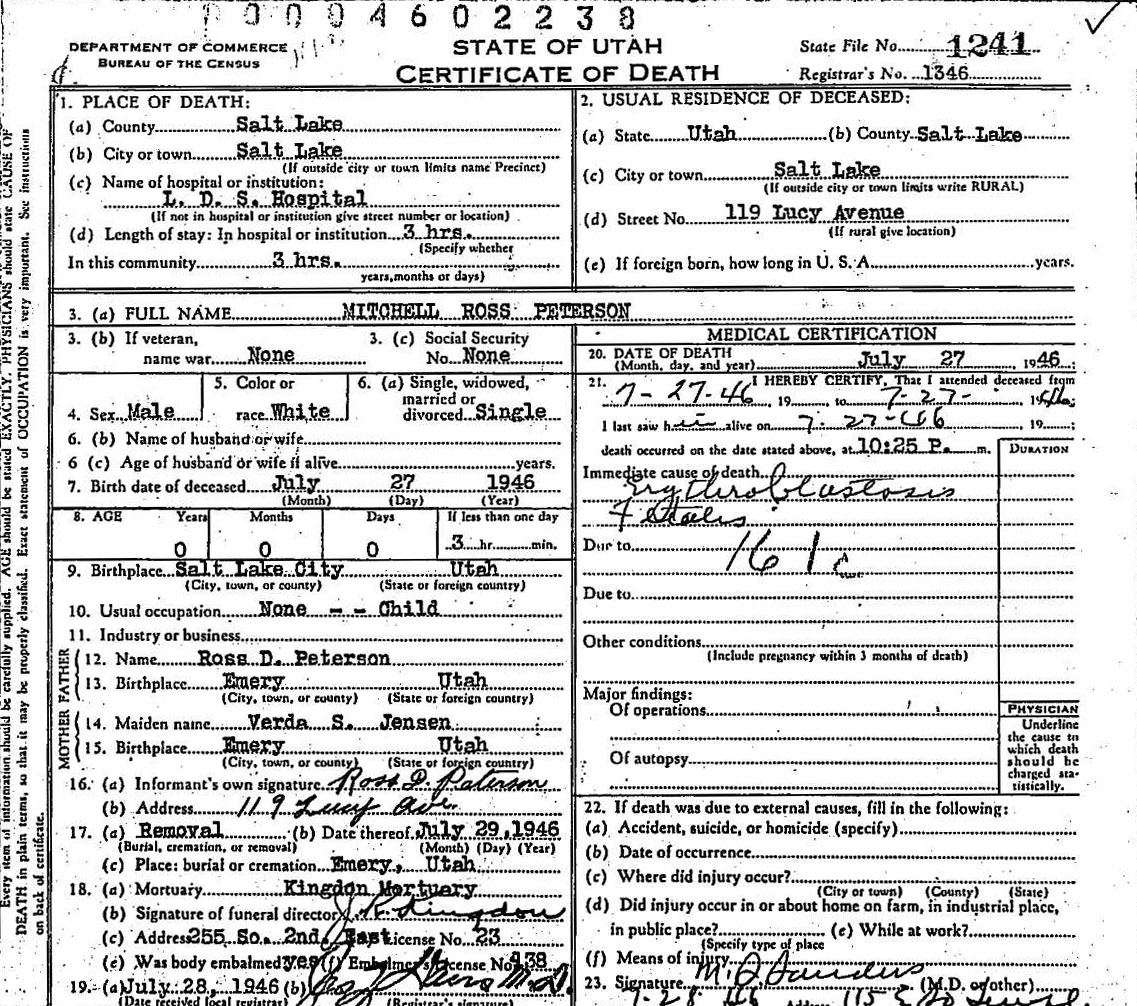 0004602238
DEPARTMENT OF COMMERCE
BUREAU OF THE CENSUS
STATE OF UTAH
CERTIFICATE OF DEATH
State File No. 1241
Registrar's No. 1346
Every item of information should be carefully supplied. AGE should be stated EXACTLY. PHYSICIANS should state CAUSE OF
DEATH in plain terms, so that it may be properly classified. Exact statement of OCCUPATION is very important. See instructions
on back of certificate.
1. PLACE OF DEATH:
(a) County Salt Lake
(b) City or town Salt Lake
(If outside city or town limits name Precinct)
(c) Name of hospital or institution:
L. D. S. Hospital
(If not in hospital or institution give street number or location)
(d) Length of stay: In hospital or institution 3 hrs.
(Specify whether
In this community 3 hrs.
years, months or days)
2. USUAL RESIDENCE OF DECEASED:
(a) State Utah (b) County Salt Lake
(c) City or town Salt Lake
(If outside city or town limits write RURAL)
(d) Street No. 119 Lucy Avenue
(If rural give location)
(e) If foreign born, how long in U. S. A. years.
3. (a) FULL NAME MITCHELL ROSS PETERSON
3. (b) If veteran,
name war None
3. (c) Social Security
No. None
4. Sex Male
5. Color or
race White
6. (a) Single, widowed,
married or
divorced Single
6. (b) Name of husband or wife
6 (c) Age of husband or wife if alive years.
7. Birth date of deceased July 27 1946
(Month) (Day) (Year)
8. AGE Years Months Days If less than one day
0 0 0 3 hr. min.
9. Birthplace Salt Lake City Utah
(City, town, or county) (State or foreign country)
10. Usual occupation None -- Child
11. Industry or business
FATHER
12. Name Ross D. Peterson
13. Birthplace Emery Utah
(City, town, or county) (State or foreign country)
MOTHER
14. Maiden name Verda S. Jensen
15. Birthplace Emery Utah
(City, town, or county) (State or foreign country)
16. (a) Informant's own signature Ross D. Peterson
(b) Address 119 Lucy Ave.
17. (a) Removal (b) Date thereof July 29, 1946
(Burial, cremation, or removal) (Month) (Day) (Year)
(c) Place: burial or cremation Emery, Utah
18. (a) Mortuary Kingdon Mortuary
(b) Signature of funeral director Kingdon
(c) Address 255 So. 2nd, East License No. 23
(e) Was body embalmed yes (f) Embalmer's License No. 938
19. (a) July 28, 1946 (b) M.D.
(Date received local registrar) (Registrar's signature)
MEDICAL CERTIFICATION
20. DATE OF DEATH
(Month, day, and year) July 27 1946
21. I HEREBY CERTIFY, That I attended deceased from
7-27-46, 19 to 7-27- 1946
I last saw h alive on 7-27-46, 19
death occurred on the date stated above, at 10:25 P. m.
DURATION
Immediate cause of death
Erythroblastosis
Fetalis
Due to 161c
Due to
Other conditions
(Include pregnancy within 3 months of death)
Major findings:
Of operations
Of autopsy
PHYSICIAN
Underline
the cause to
which death
should be
charged sta-
tistically.
22. If death was due to external causes, fill in the following:
(a) Accident, suicide, or homicide (specify)
(b) Date of occurrence
(c) Where did injury occur?
(City or town) (County) (State)
(d) Did injury occur in or about home on farm, in industrial place,
in public place? (e) While at work?
(Specify type of place
(f) Means of injury
23. Signature Sanders (M.D. or other)
7-28-46 115 E